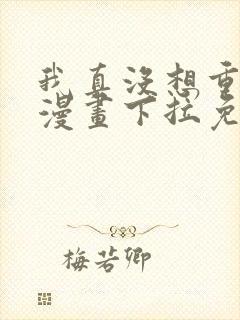 我真没想重
漫畫下拉免
梅若卿